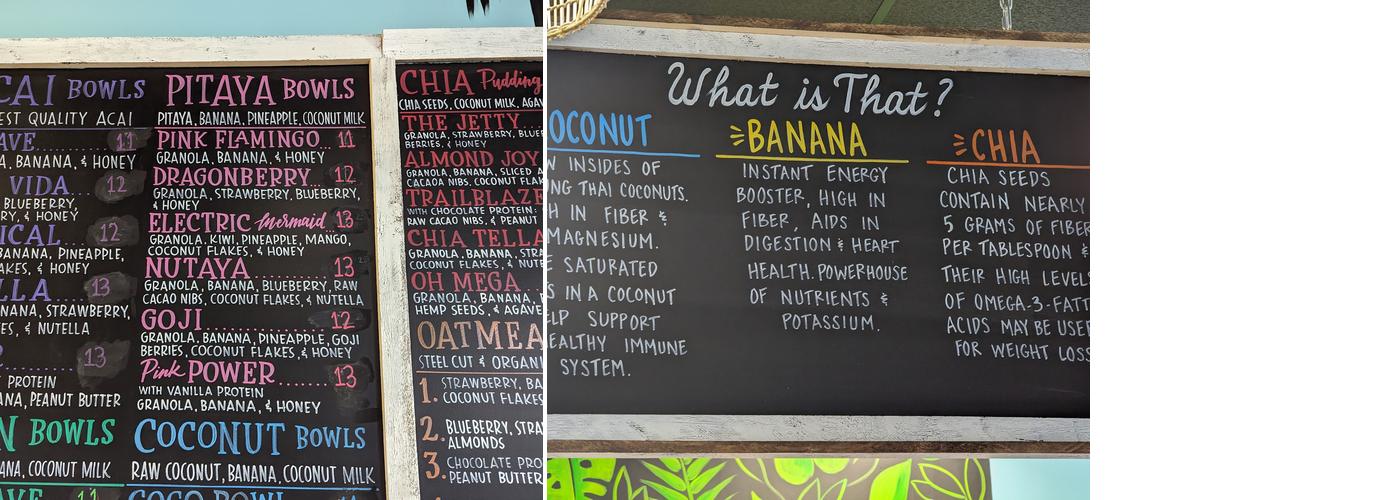 CAI BOWLS
EST QUALITY ACAI
AVE 11
A, BANANA, & HONEY
VIDA.... 12
BLUEBERRY,
RY, & HONEY
ICAL.... 12
BANANA, PINEAPPLE,
AKES, & HONEY
LLA.... 13
NANA, STRAWBERRY,
ES, & NUTELLA
13
PROTEIN
ANA, PEANUT BUTTER
N BOWLS
ANA, COCONUT MILK
AVE 11
PITAYA BOWLS
PITAYA, BANANA, PINEAPPLE, COCONUT MILK
PINK FLAMINGO... 11
GRANOLA, BANANA, & HONEY
DRAGONBERRY... 12
GRANOLA, STRAWBERRY, BLUEBERRY,
& HONEY
ELECTRIC Mermaid..13
GRANOLA, KIWI, PINEAPPLE, MANGO,
COCONUT FLAKES, & HONEY
NUTAYA........ 13
GRANOLA, BANANA, BLUEBERRY, RAW
CACAO NIBS, COCONUT FLAKES, & NUTELLA
GOJI.............. 12
GRANOLA, BANANA, PINEAPPLE, GOJI
BERRIES, COCONUT FLAKES, & HONEY
Pink POWER....... 13
WITH VANILLA PROTEIN
GRANOLA, BANANA, & HONEY
COCONUT BOWLS
RAW COCONUT, BANANA, COCONUT MILK
COCO BOWL
CHIA Pudding
CHIA SEEDS, COCONUT MILK, AGAV
THE JETTY....
GRANOLA, STRAWBERRY, BLUE
BERRIES, & HONEY
ALMOND JOY
GRANOLA, BANANA, SLICED A
CACAOA NIBS, COCONUT FLAK
TRAILBLAZE
WITH CHOCOLATE PROTEIN:
RAW CACAO NIBS, & PEANUT
CHIA TELLA
GRANOLA, BANANA, STRA
COCONUT FLAKES, & NUT
OH MEGA.....
GRANOLA, BANANA, P
HEMP SEEDS, & AGAVE
OATMEA
STEEL CUT & ORGANI
1. STRAWBERRY, BA
COCONUT FLAKES
2. BLUEBERRY, STRA
ALMONDS
3. CHOCOLATE PRO
PEANUT BUTTER
What is That?
OCONUT
W INSIDES OF
NG THAI COCONUTS.
H IN FIBER &
MAGNESIUM.
E SATURATED
S IN A COCONUT
ELP SUPPORT
EALTHY IMMUNE
SYSTEM.
BANANA
INSTANT ENERGY
BOOSTER, HIGH IN
FIBER, AIDS IN
DIGESTION & HEART
HEALTH. POWERHOUSE
OF NUTRIENTS &
POTASSIUM.
CHIA
CHIA SEEDS
CONTAIN NEARLY
5 GRAMS OF FIBER
PER TABLESPOON &
THEIR HIGH LEVELS
OF OMEGA-3-FATT
ACIDS MAY BE USEF
FOR WEIGHT LOSS